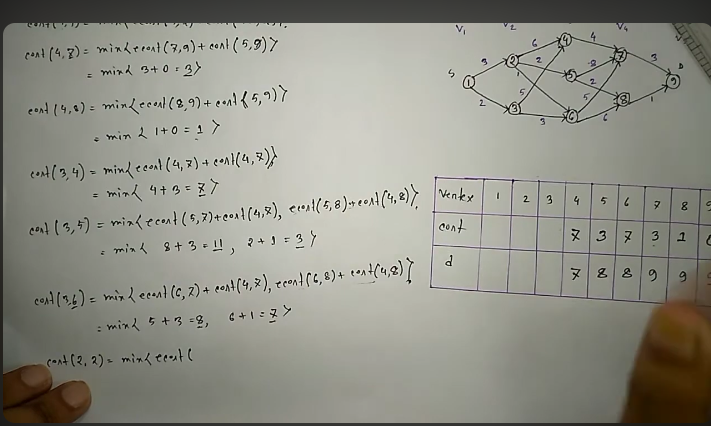 cost(4,7) = min{ecost(7,9)+cost(5,9)}
= min{ 3+0 = 3}
cost(4,8) = min{ecost(8,9)+cost(5,9)}
= min { 1+0 = 1 }
cost(3,4) = min{ecost(4,7)+cost(4,7)}
= min{ 4+3 = 7}
cost(3,5) = min{ecost(5,7)+cost(4,7), ecost(5,8)+cost(4,8)}
= min{ 8+3 = 11, 2+1 = 3}
cost(3,6) = min{ecost(6,7)+cost(4,7), ecost(6,8)+cost(4,8)}
= min{ 5+3 = 8, 6+1 = 7}
cost(2,2) = min{ecost(
V1 V2 V4
S 1 3 2 2 3
6 2 1 5 3
4 5 6
4 8 2 5 6
7 8 3 1 9 D
Vertex 1 2 3 4 5 6 7 8 9
cost 7 3 7 3 1
d 7 8 8 9 9